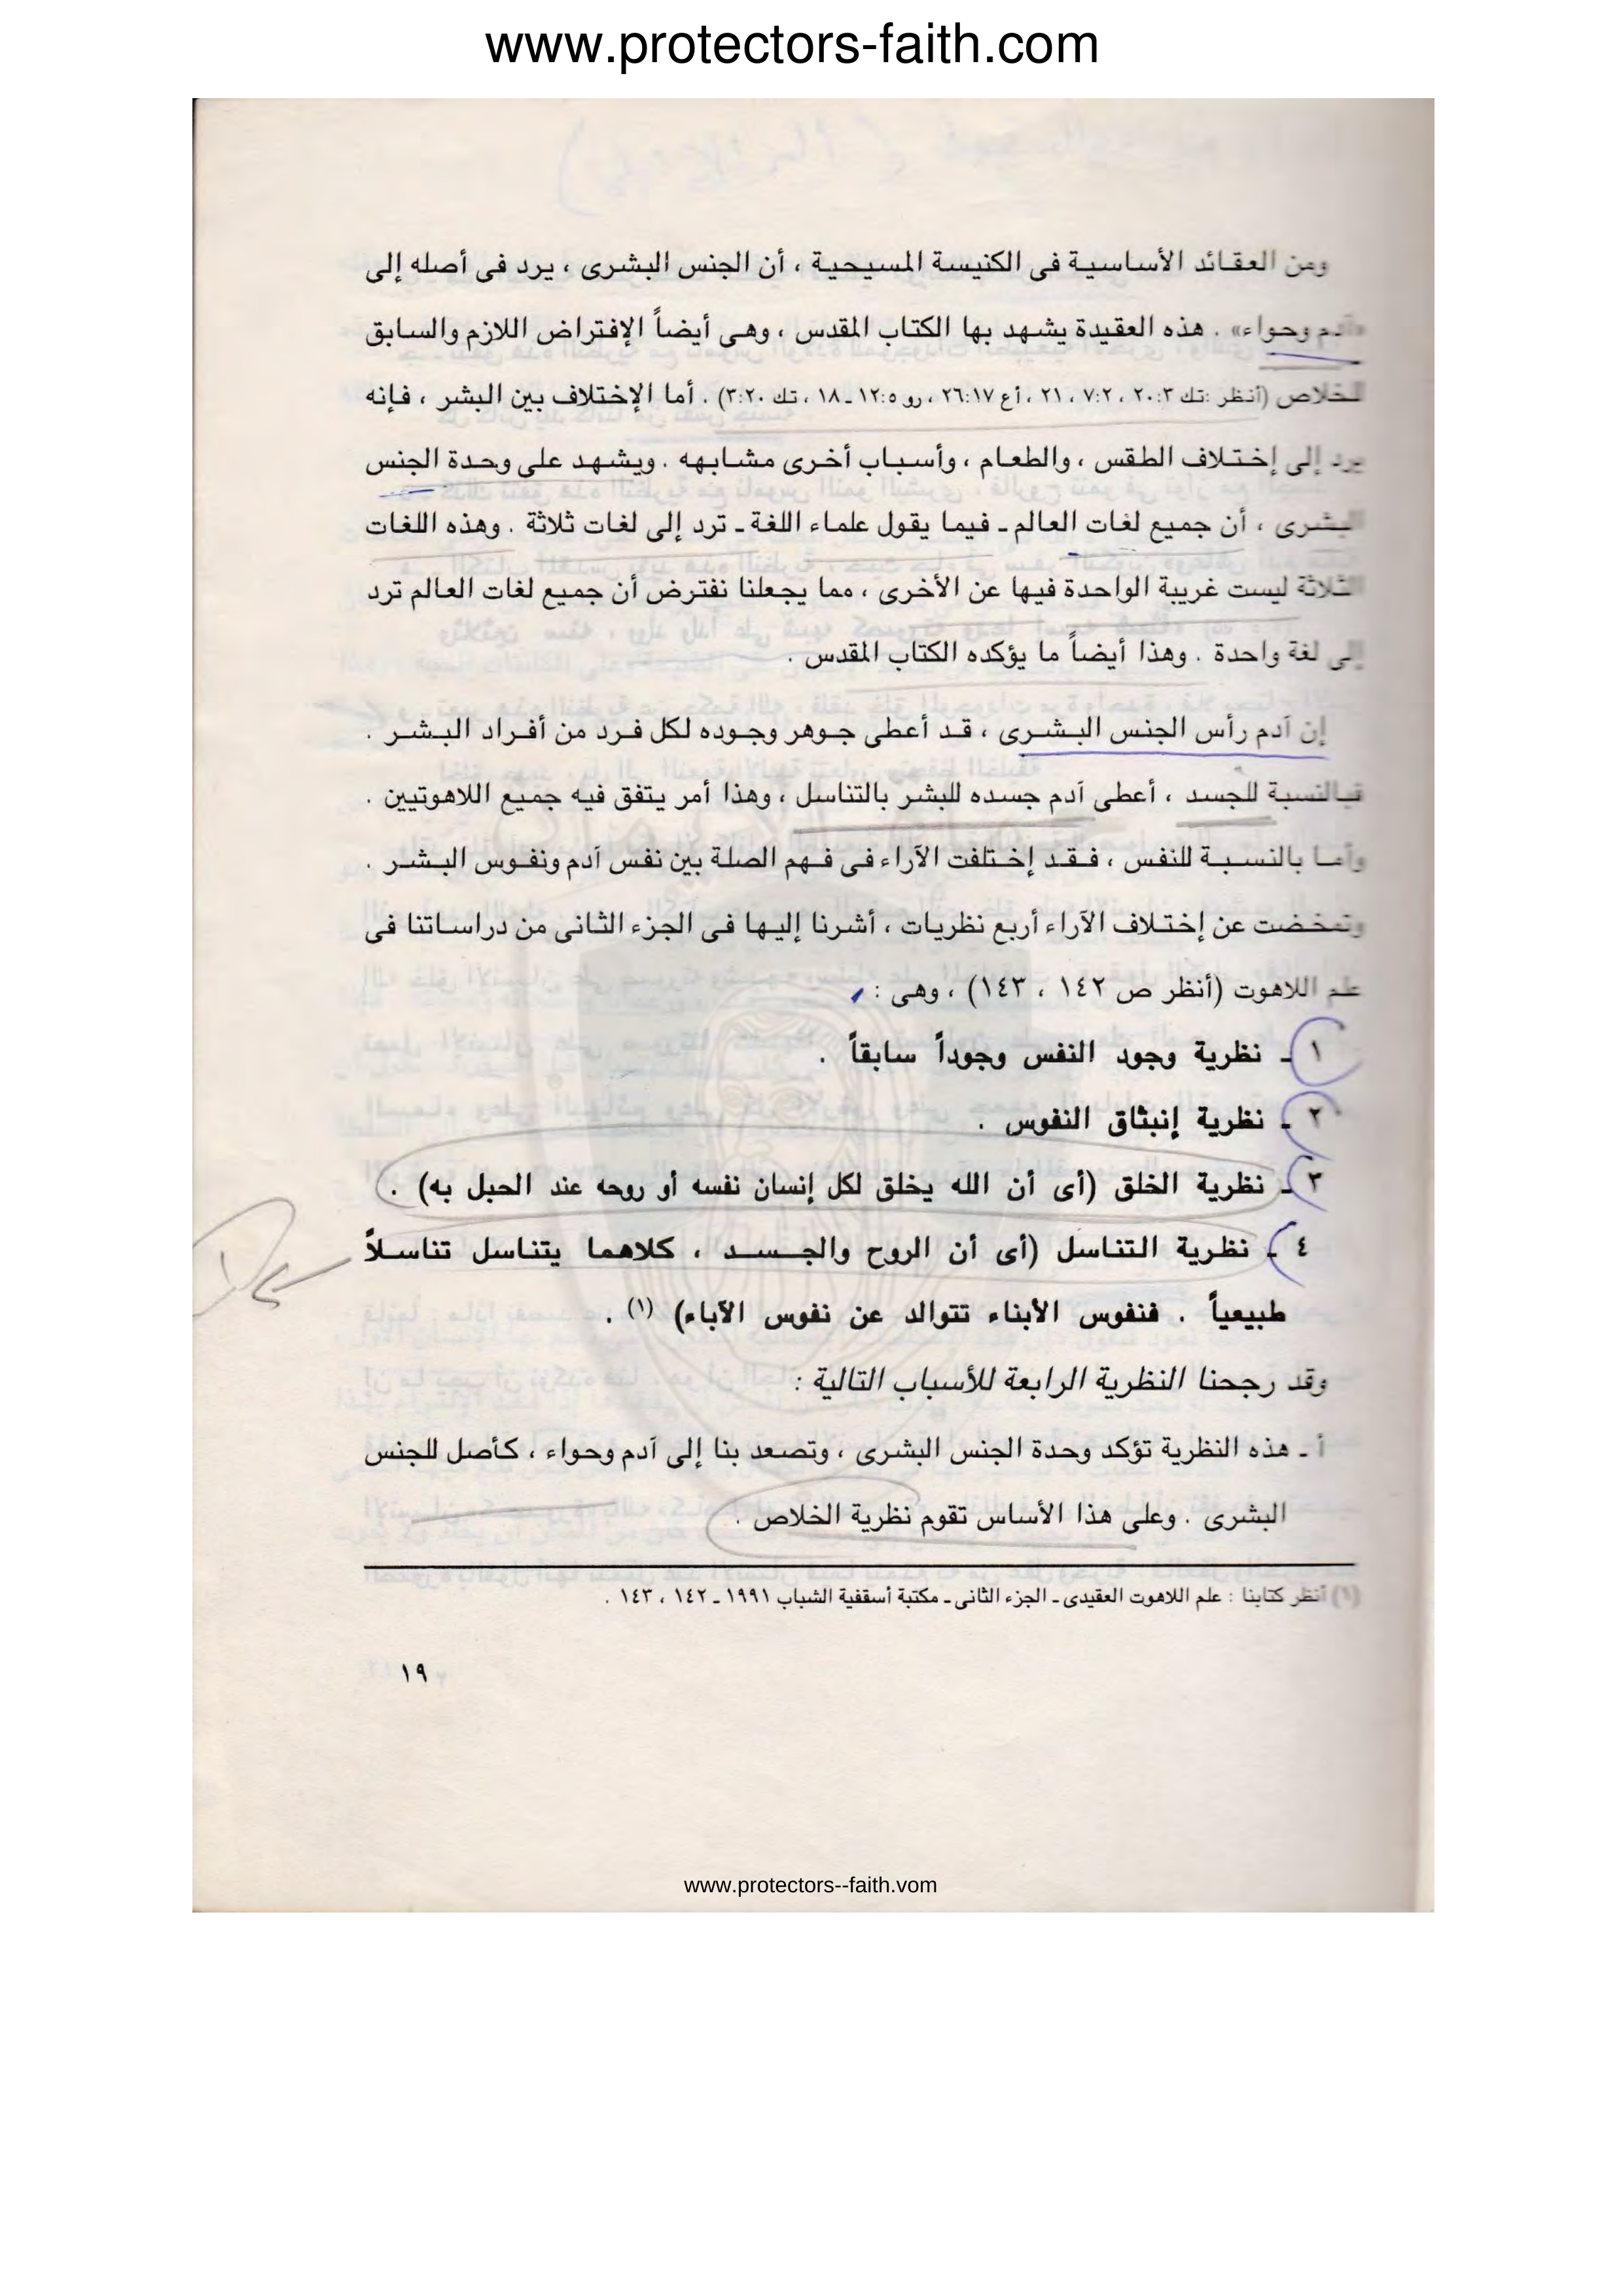 www.protectors-faith.com
ومن العقائد الأساسية فى الكنيسة المسيحية ، أن الجنس البشرى ، يرد فى أصله إلى
«آدم وحواء» . هذه العقيدة يشهد بها الكتاب المقدس ، وهى أيضاً الإفتراض اللازم والسابق
للخلاص (أنظر :تك ٣ :٢٠ ، ٢ :٧ ، ٢١ ، أع ١٧ :٢٦ ، رو ٥ :١٢ ـ ١٨ ، تك ٢٠ :٣) . أما الإختلاف بين البشر ، فإنه
يرد إلى إختلاف الطقس ، والطعام ، وأسباب أخرى مشابهه . ويشهد على وحدة الجنس
البشرى ، أن جميع لغات العالم ـ فيما يقول علماء اللغة ـ ترد إلى لغات ثلاثة . وهذه اللغات
الثلاثة ليست غريبة الواحدة فيها عن الأخرى ، مما يجعلنا نفترض أن جميع لغات العالم ترد
إلى لغة واحدة . وهذا أيضاً ما يؤكده الكتاب المقدس .
إن آدم رأس الجنس البشرى ، قد أعطى جوهر وجوده لكل فرد من أفراد البشر .
فبالنسبة للجسد ، أعطى آدم جسده للبشر بالتناسل ، وهذا أمر يتفق فيه جميع اللاهوتيين .
وأما بالنسبة للنفس ، فقد إختلفت الآراء فى فهم الصلة بين نفس آدم ونفوس البشر .
وتمخضت عن إختلاف الآراء أربع نظريات ، أشرنا إليها فى الجزء الثانى من دراساتنا فى
علم اللاهوت (أنظر ص ١٤٢ ، ١٤٣) ، وهى :
١ ـ نظرية وجود النفس وجوداً سابقاً .
٢ ـ نظرية إنبثاق النفوس .
٣ ـ نظرية الخلق (أى أن الله يخلق لكل إنسان نفسه أو روحه عند الحبل به) .
٤ ـ نظرية التناسل (أى أن الروح والجسد ، كلاهما يتناسل تناسلاً
طبيعياً . فنفوس الأبناء تتوالد عن نفوس الآباء) (١) .
وقد رجحنا النظرية الرابعة للأسباب التالية :
أ ـ هذه النظرية تؤكد وحدة الجنس البشرى ، وتصعد بنا إلى آدم وحواء ، كأصل للجنس
البشرى . وعلى هذا الأساس تقوم نظرية الخلاص .
(١) أنظر كتابنا : علم اللاهوت العقيدى ـ الجزء الثانى ـ مكتبة أسقفية الشباب ١٩٩١ ـ ١٤٢ ، ١٤٣ .
١٩
www.protectors--faith.vom